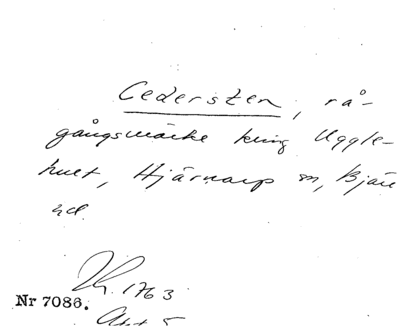 Cedersten, rå-
gångsmärke kring Uggle-
hult, Hjärnarp sn, Bjäre
hd
1763
Nr 7086.